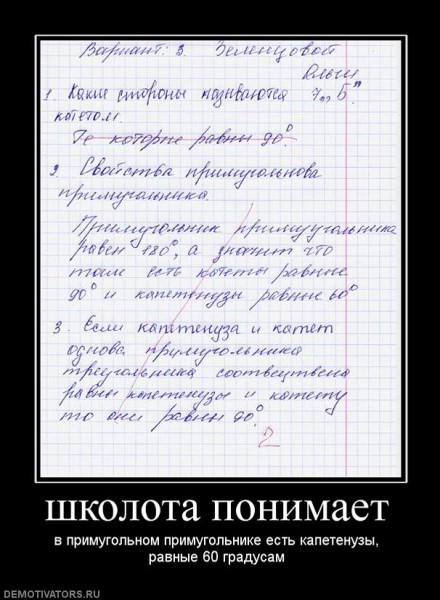 Вариант: 3. Зеленцовой
Ольги
1. Какие стороны называются 7 "Б"
катетом.
Те которые равны 90°.
2. Свойства примугольнова
примугольника.
Примиугольник примиугольника
равен 180°, а значит что
там есть катеты равные
90° и капетенузы равные 60°
3. Если капетенуза и катет
однова примугольника
треугольника соотвецтвена
равны капетенузы и катету
то они равны 90°.
2
школота понимает
в примугольном примугольнике есть капетенузы,
равные 60 градусам
DEMOTIVATORS.RU